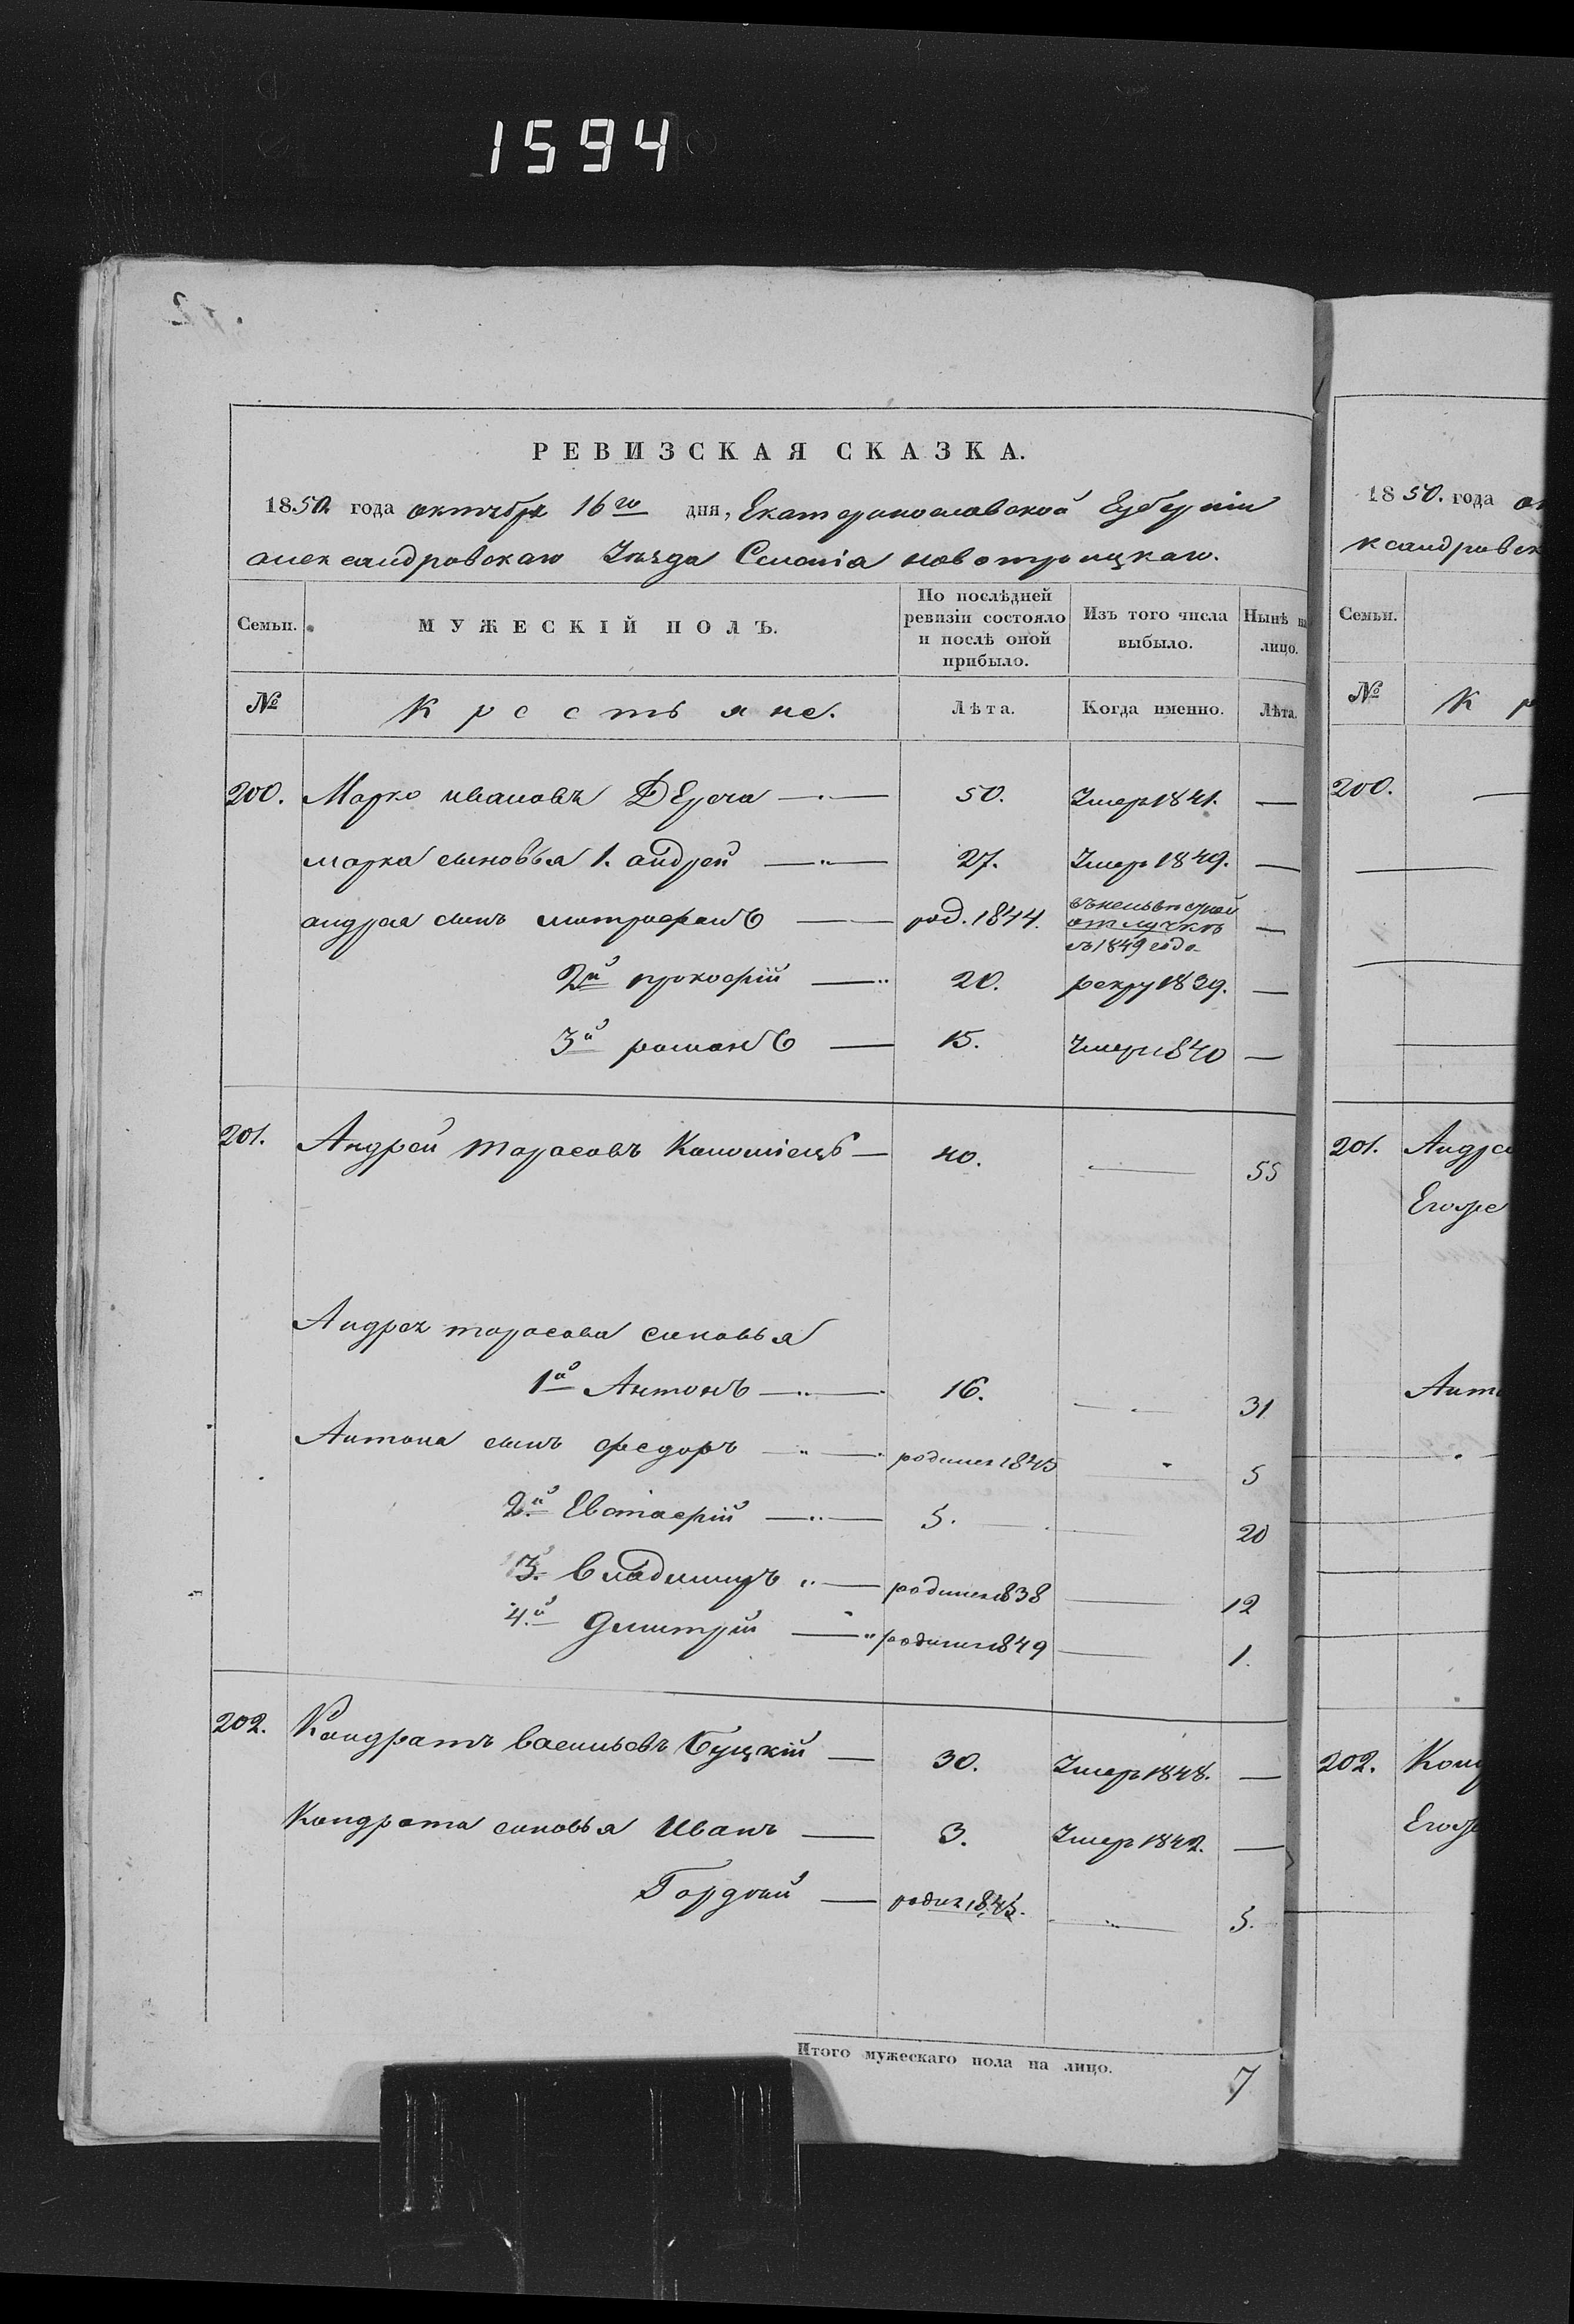 1594
РЕВИЗСКАЯ СКАЗКА.
1850 года октября 16го дня, Екатеринославской Губерніи
александровскаго Уѣзда Селенія новотроицкаго.
Семьи. МУЖЕСКІЙ ПОЛЪ. По послѣдней ревизіи состояло и послѣ оной прибыло. Изъ того числа выбыло. Нынѣ на лицо.
№ Крестьяне. Лѣта. Когда именно. Лѣта.
200. Марко ивановъ 50. Умер 1841. —
марка сыновья 1. андрей — 27. Умеръ 1849. —
андрея сынъ митрофанъ — род. 1844. отлучкѣ съ 1849 года —
2й прокофій — 20. рекру 1839. —
3й романъ — 15. Умеръ 1840 —
201. Андрей тарасовъ Коломіецъ — 40. — 55
Андрея тарасова сыновья
1й Антонъ — 16. — 31
Антона сынъ федоръ — родился 1845 — 5
2й Евстафій — 5. — 20
3. владимиръ — родился 1838 — 12
4й Дмитрій — родился 1849 — 1.
202. Кондратъ васильевъ Буцкій — 30. Умеръ 1848. —
Кондрата сыновья Иванъ — 3. Умеръ 1842. —
Гордѣй — родил 1845. — 5.
Итого мужескаго пола на лицо. 7
1850. года
ксандровск
Семьи.
№ К р
200. —
201. Андре
Егоре
Анто
202. Конд
Егоре